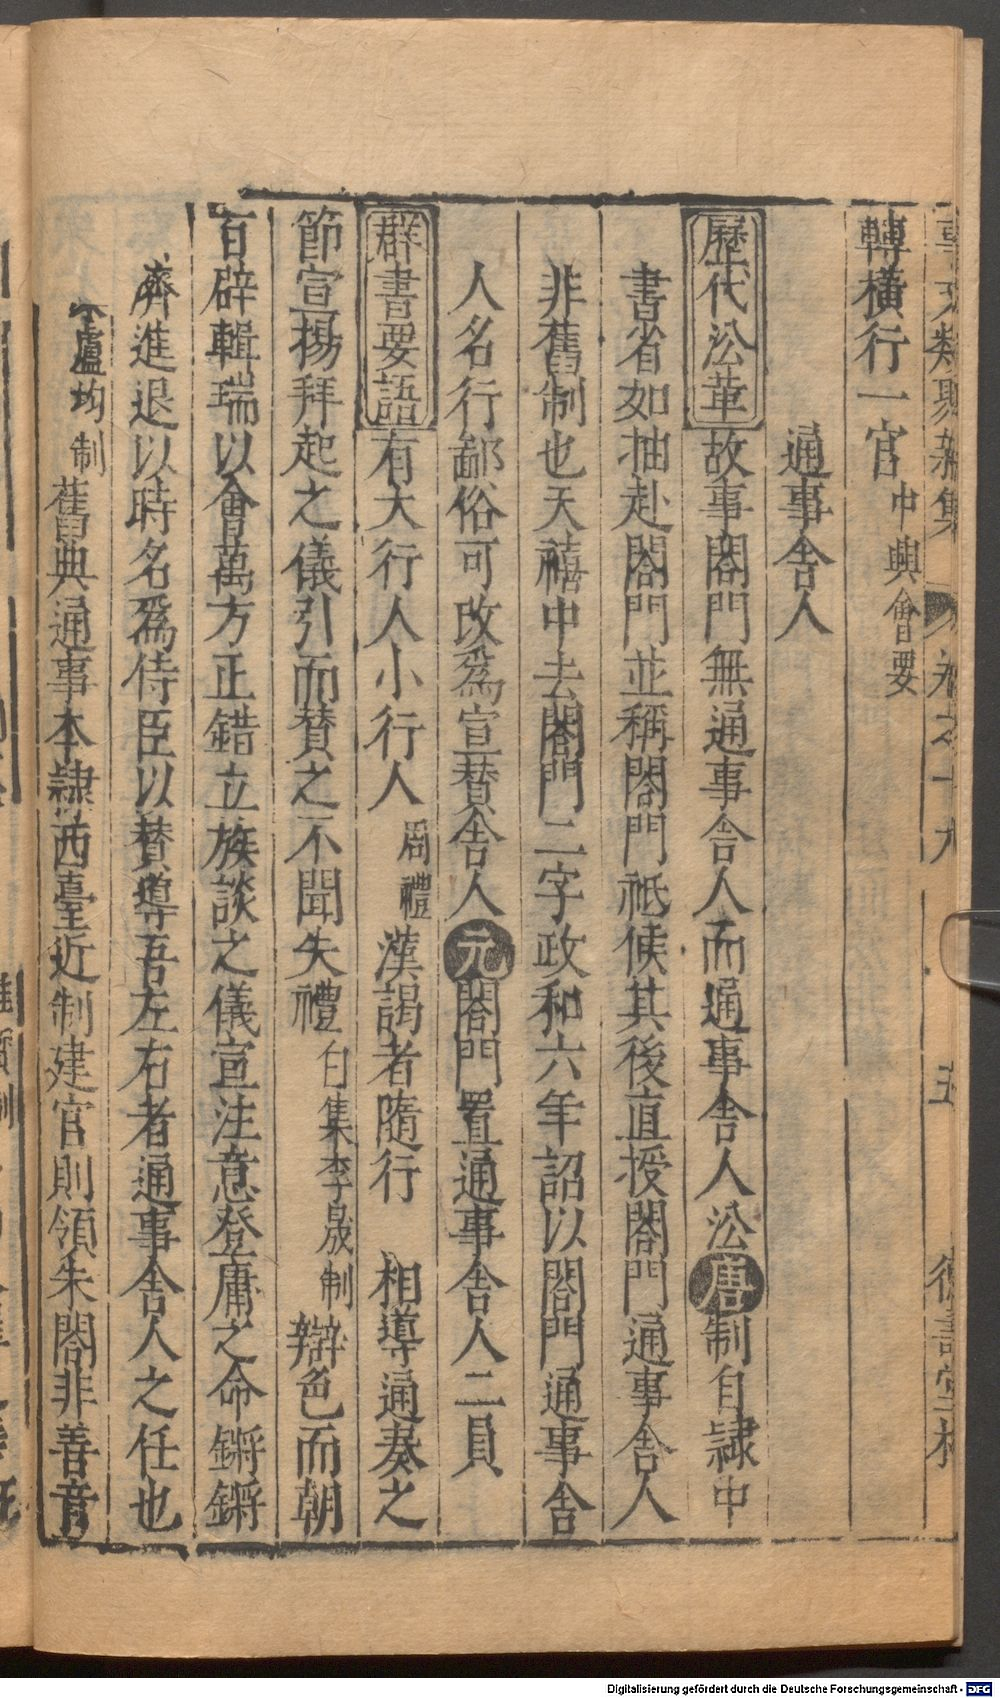 轉橫行一官中興會要
通事舍人
歷代㳂革故事閤門無通事舍人而通事舍人㳂唐制自隷中
書省如抽赴閤門並稱閤門祗候其後直授閤門通事舍人
非舊制也天禧中去閤門二字政和六年詔以閤門通事舍
人名行鄙俗可改爲宣賛舍人元閤門置通事舍人二員
群書要語有大行人小行人周禮漢謁者隨行 相導通奏之
節宣揚拜起之儀引而賛之不聞失禮白集李晟制辯色而朝
百辟輯瑞以會萬方正錯立族談之儀宣注意登庸之命鏘鏘
濟進退以時名爲侍臣以賛導吾左右者通事舍人之任也
盧均制舊典通事本隷西臺近制建官則領朱閤非善音
Digitalisierung gefördert durch die Deutsche Forschungsgemeinschaft - DFG